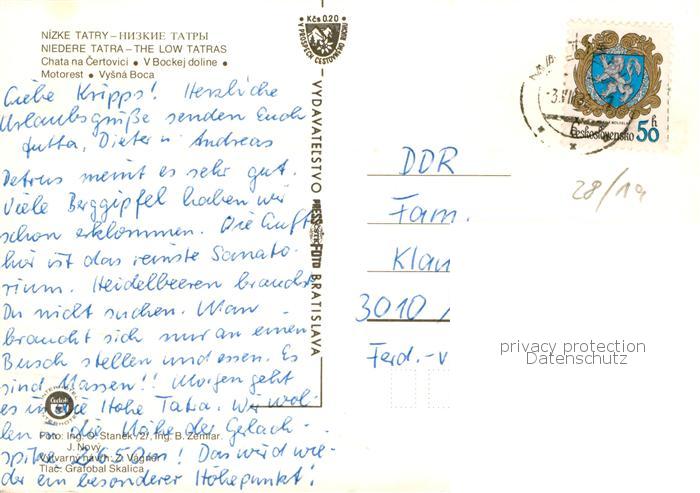 NÍZKE TATRY – НИЗКИЕ ТАТРЫ
NIEDERE TATRA – THE LOW TATRAS
Chata na Čertovici • V Bockej doline •
• Motorest • Vyšná Boca
Liebe Kripps! Herzliche
Urlaubsgrüße senden Euch
Jutta, Dieter u. Andreas
Petrus meint es sehr gut.
Viele Berggipfel haben wir
schon erklommen. Die Luft
hier ist das reinste Sanato-
rium. Heidelbeeren brauchst
Du nicht suchen. Man
braucht sich nur an einen
Busch stellen und essen. Es
sind Massen!! Morgen geht
es in die Hohe Tatra. Wir wol-
len in die Nähe der Gerlach-
spitze 2650m! Das wird wie-
der ein besonderer Höhepunkt!
Foto: Ing. O. Staněk /2/, Ing. B. Zemiar,
J. Nový
Výtvarný návrh: Z. Vágner
Tlač: Grafobal Skalica
Čedok
Kčs 0.20
V PROSPECH CESTOVNÉHO RUCHU
VYDAVATEĽSTVO PRESSFOTO BRATISLAVA
Československo 50 h
28/19
DDR
Fam.
Klau
3010
Ferd.-
privacy protection
Datenschutz